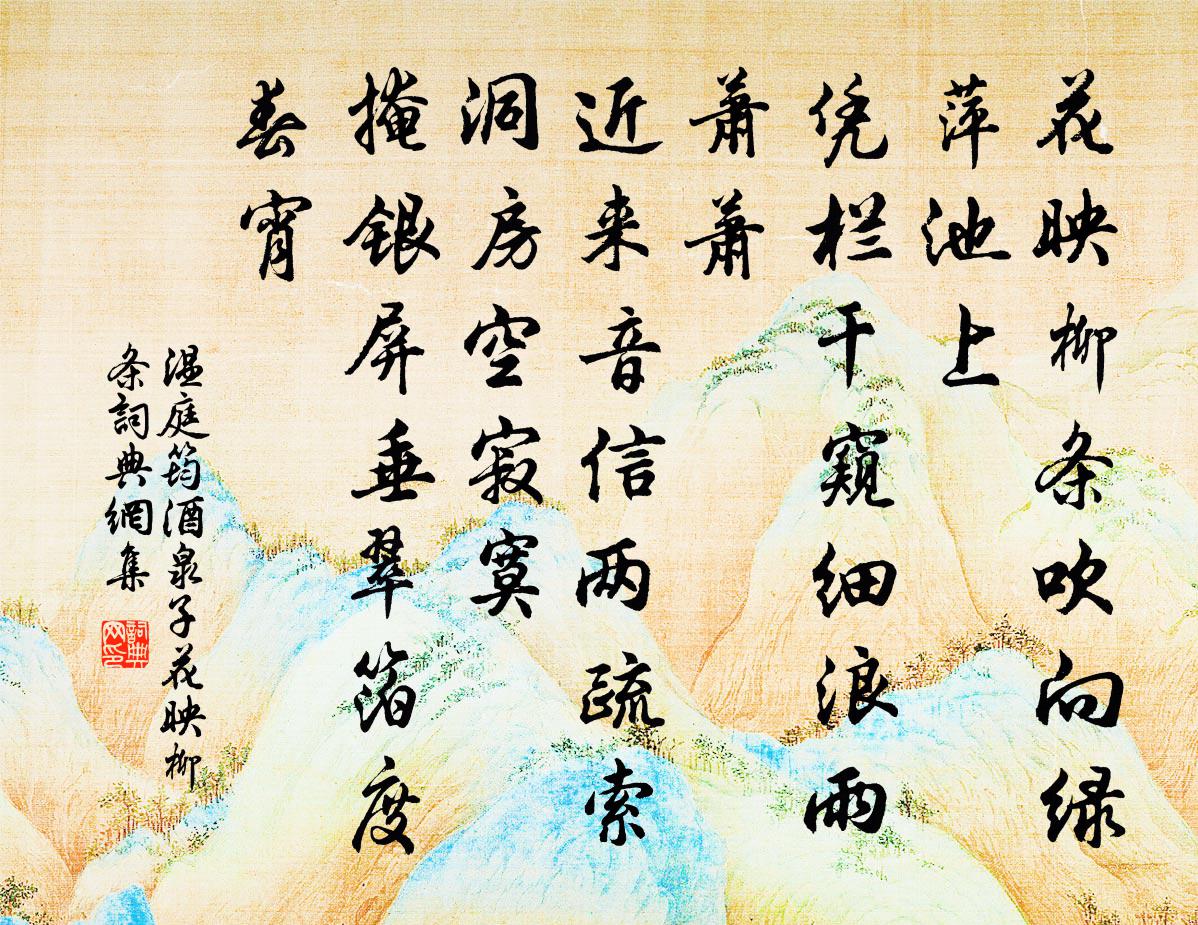 花映柳条吹向绿
萍池上
凭栏干窥细浪雨
萧萧
近来音信两疏索
洞房空寂寞
掩银屏垂翠箔度
春宵
温庭筠酒泉子花映柳
条詞典網集
詞典
网印